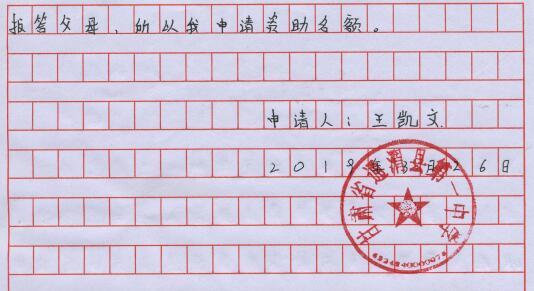 报答父母,所以我申请资助名额。
申请人:王凯文
2018年3月26日
甘肃省通渭县第一中学